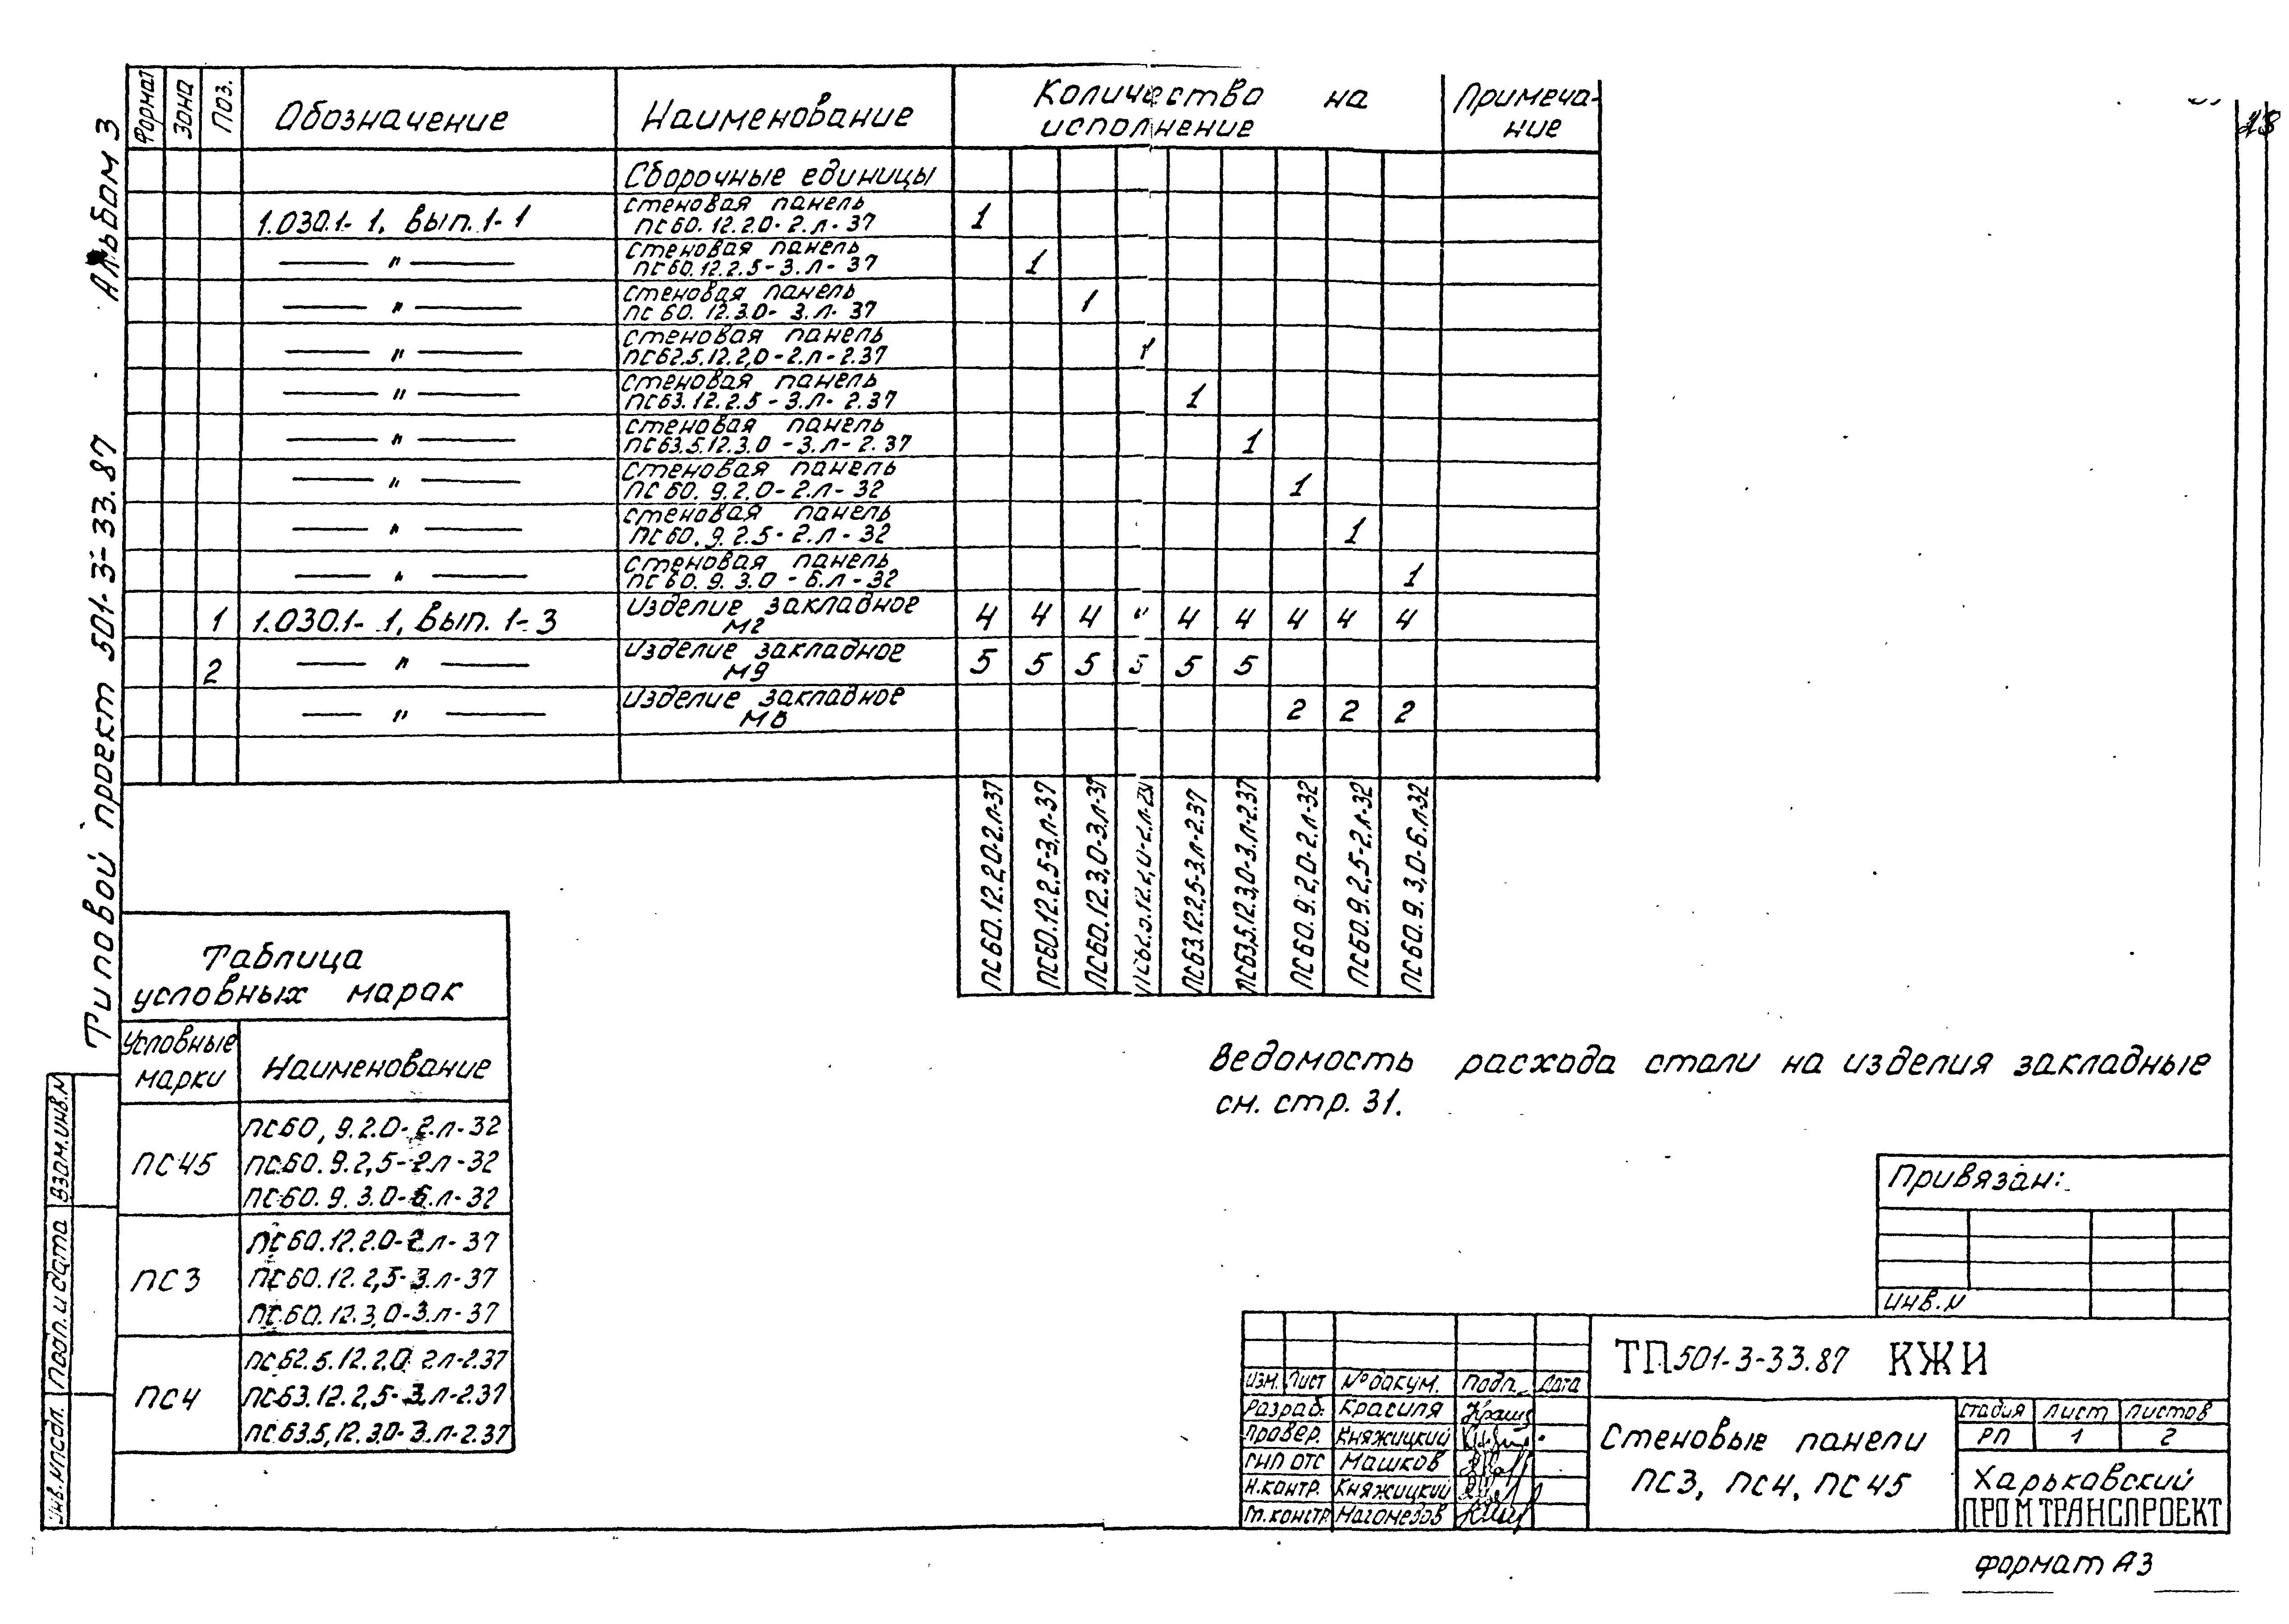 Альбом 3
Типовой проект 501-3-33.87
Формат Зона Поз. Обозначение Наименование Количество на исполнение Примечание
Сборочные единицы
1.030.1-1, вып. 1-1 стеновая панель 1
ПС60.12.2.0-2.л-37
— " — стеновая панель 1
ПС60.12.2.5-3.л-37
— " — стеновая панель 1
ПС60.12.3.0-3.л-37
— " — стеновая панель 1
ПС62.5.12.2,0-2.л-2.37
— " — стеновая панель 1
ПС63.12.2.5-3.л-2.37
— " — стеновая панель 1
ПС63.5.12.3.0-3.л-2.37
— " — стеновая панель 1
ПС60.9.2.0-2.л-32
— " — стеновая панель 1
ПС60.9.2.5-2.л-32
— " — стеновая панель 1
ПС60.9.3.0-6.л-32
1 1.030.1-1, вып. 1-3 Изделие закладное 4 4 4 " 4 4 4 4 4
М2
2 — " — Изделие закладное 5 5 5 5 5 5
М9
— " — Изделие закладное 2 2 2
ПС60.12.2,0-2.л-37
ПС60.12.2.5-3.л-37
ПС60.12.3,0-3.л-37
ПС63.12.2,5-3.л-2.37
ПС63,5.12.3,0-3.л-2.37
ПС60.9.2,0-2.л-32
ПС60.9.2,5-2.л-32
ПС60.9.3,0-6.л-32
Таблица
условных марак
Условные марки Наименование
ПС45 ПС60,9.2.0-2.л-32
ПС60.9.2,5-2л-32
ПС60.9.3.0-6.л-32
ПС3 ПС60.12.2.0-2л-37
ПС60.12.2,5-3.л-37
ПС60.12.3,0-3.л-37
ПС4 ПС62.5.12.2.0 2л-2.37
ПС63.12.2,5-3.л-2.37
ПС63.5,12.3.0-3.л-2.37
Ведомость расхода стали на изделия закладные
см. стр. 31.
Взам.инв.N
Подп. и дата
Инв.Nподл.
Привязан:
Инв.N
Изм. Лист № докум. Подп. Дата
Разраб. Красиля
Провер. Княжицкий
ГИП ОТС Машков
Н.контр. Княжицкий
Гл.констр Магомедов
ТП501-3-33.87 КЖИ
Стеновые панели
ПС3, ПС4, ПС45
Стадия Лист Листов
РП 1 2
Харьковский
ПРОМТРАНСПРОЕКТ
Формат А3